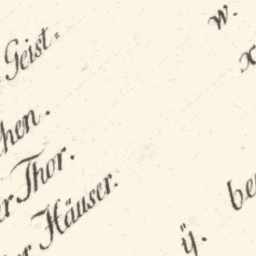 Geist=
w.
chen.
er Thor.
Häuser.
ÿ.